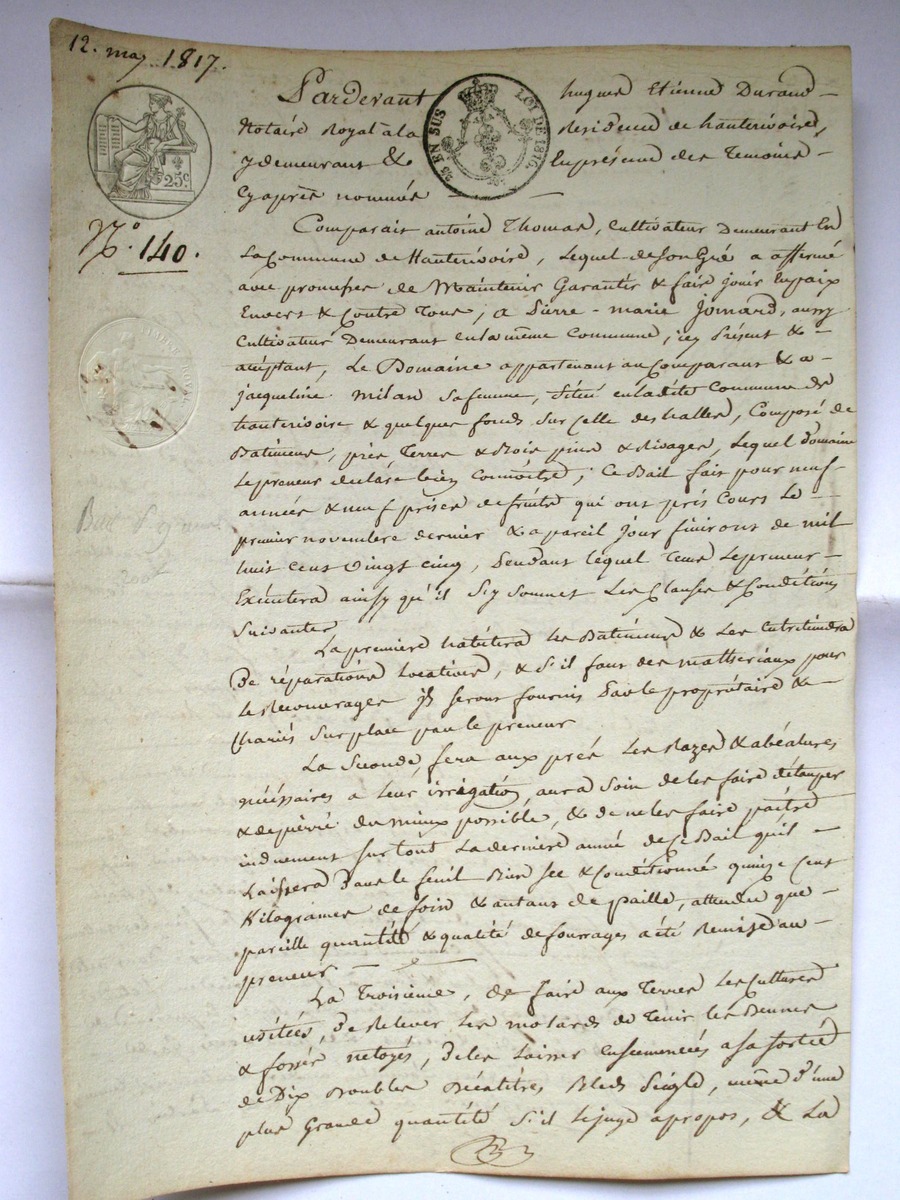 12. may 1817.
25 EN SUS LOI DE 1816.
25 c.
N.º 140.
Pardevant hugues Etienne Durand
Notaire Royal a la Residence de hauterivoire,
y demeurant & En presence des Temoins
Cyaprès nommés
Comparait antoine Thomas, Cultivateur Demeurant En
La Commune de Hauterivoire, Lequel de son Gré a affermé
avec promesse de Maintenir Garantir & faire jouir En paix
Envers & Contre Tous, a Pierre-marie Jomard, aussy
Cultivateur Demeurant en la même Commune, icy Present &
acceptant, Le Domaine appartenant au Comparant & a
jacqueline Milan Sa femme, Situé en ladite Commune de
hauterivoire & quelques fonds sur Celle des halles, Composé de
Batimens, prés Terres & Bois pins & Rivages, Lequel Domaine
Le preneur declare bien Connoitre; Ce Bail fait pour neuf
années & neuf prises de fruits qui ont pris Cours Le
premier novembre dernier & a pareil jour finiront de mil
huit cent vingt cinq, Pendant lequel Tems Le preneur
Exécutera ainsy qu'il S'y Soumet Les Clauses & Conditions
Suivantes
La premiere habitera Les Batimens & Les Entretiendra
De réparations Locatives, & S'il faut des mathériaux pour
Le Recouvrages ils seront fournis Par le propriétaire &
Chariés Sur place par le preneur
La Seconde, fera aux prés Les Razes & abéalures
nécéssaires a Leur irrigation, aura Soin de les faire détauper
& depierré du mieux possible, & de ne les faire paitre
induement Surtout La derniere année de Ce Bail qu'il
Laissera Dans le fenil Bien Sec & Conditionné quinze Cent
Kilogrames de foin & autant de paille, attendu que
pareille quantité & qualité de fourrages a été Remise au
preneur
La Troisieme, de faire aux Terres Les Cultures
usitées, De Relever Les molards de Tenir les
& fossés netoyés, De les Laisser Ensemencées a sa Sortie
de Dix Doubles Décalitres Bleds Seigle, même d'une
plus Grande quantité S'il Le juge apropos, & La